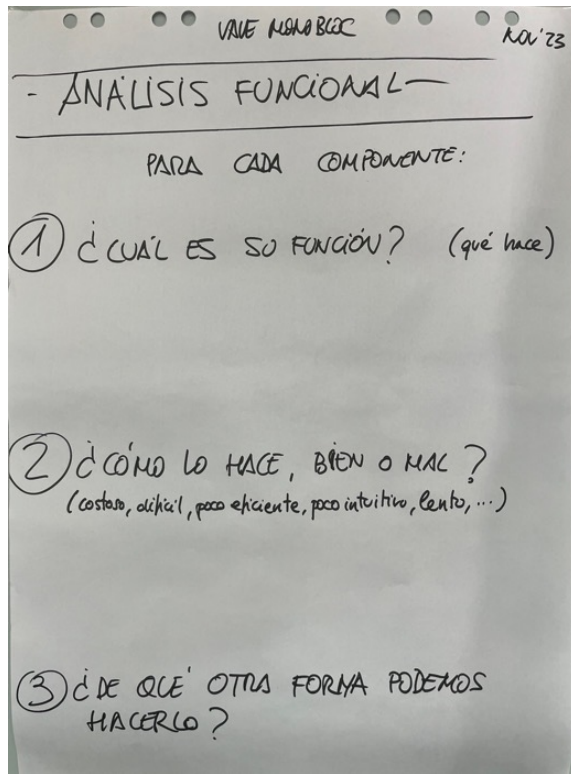 VAVE MONOBLOC
NOV'23
- ANÁLISIS FUNCIONAL -
PARA CADA COMPONENTE:
① ¿CUÁL ES SU FUNCIÓN? (qué hace)
② ¿CÓMO LO HACE, BIEN O MAL?
(costoso, difícil, poco eficiente, poco intuitivo, lento, ...)
③ ¿DE QUÉ OTRA FORMA PODEMOS
HACERLO?